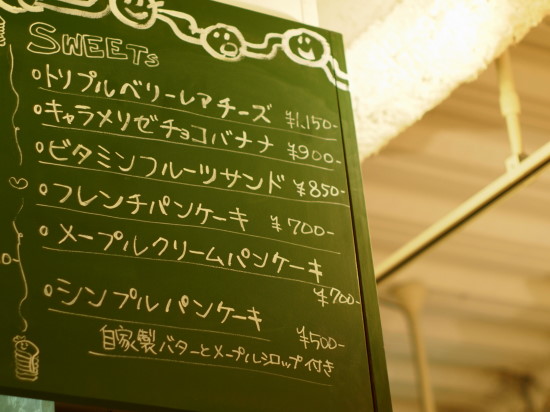 SWEETS
○トリプルベリーレアチーズ ¥1,150-
○キャラメリゼチョコバナナ ¥900-
○ビタミンフルーツサンド ¥850-
○フレンチパンケーキ ¥700-
○メープルクリームパンケーキ
¥700-
○シンプルパンケーキ ¥500-
自家製バターとメープルシロップ付き